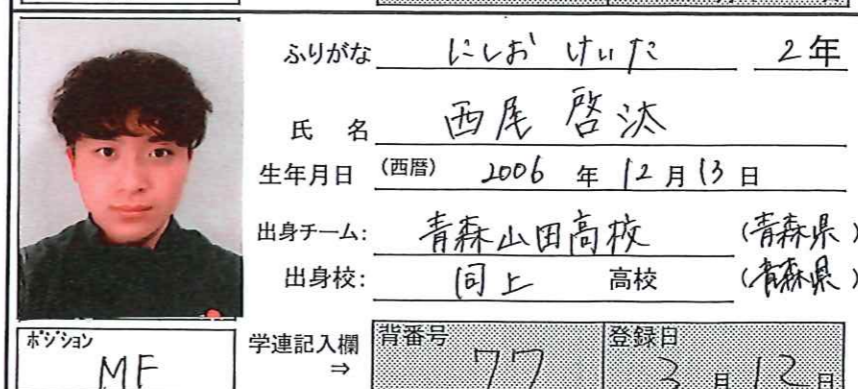 ふりがな にしお けいた 2年
氏 名 西尾 啓汰
生年月日 (西暦) 2006 年 12 月 13 日
出身チーム: 青森山田高校 (青森県)
出身校: 同上 高校 (青森県)
ポジション 学連記入欄 背番号 登録日
MF ⇒ 77 3 月 13 日